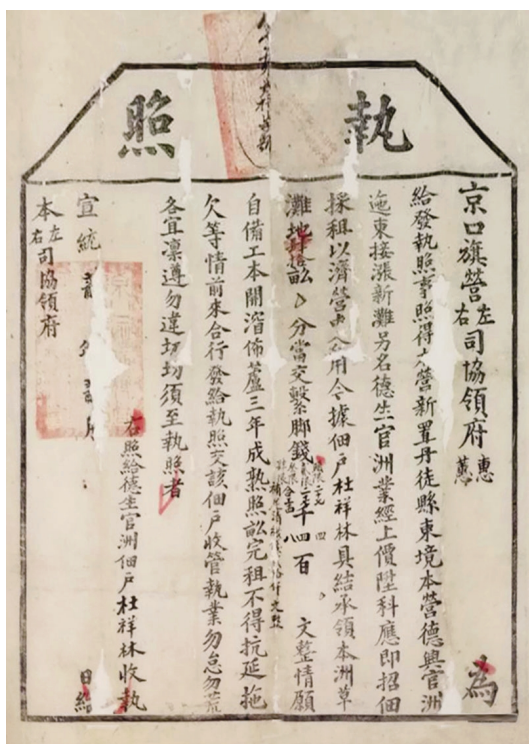 執照
京口旗營左右司協領府惠蕙為
給發執照事照得本營新置丹徒縣東境本營德興官洲
迤東接漲新灘另名德生官洲業經上價陞科應即招佃
採租以濟營中公用今據佃戶杜祥林具結承領本洲草
灘地畝分當交繫腳錢千四百文整情願
自備工本開溜佈蘆三年成熟照畝完租不得抗延拖
欠等情前來合行發給執照交該佃戶收管執業勿怠勿荒
各宜凜遵勿違切切須至執照者
右照給德生官洲佃戶杜祥林收執
宣統年月日給
本左右司協領府